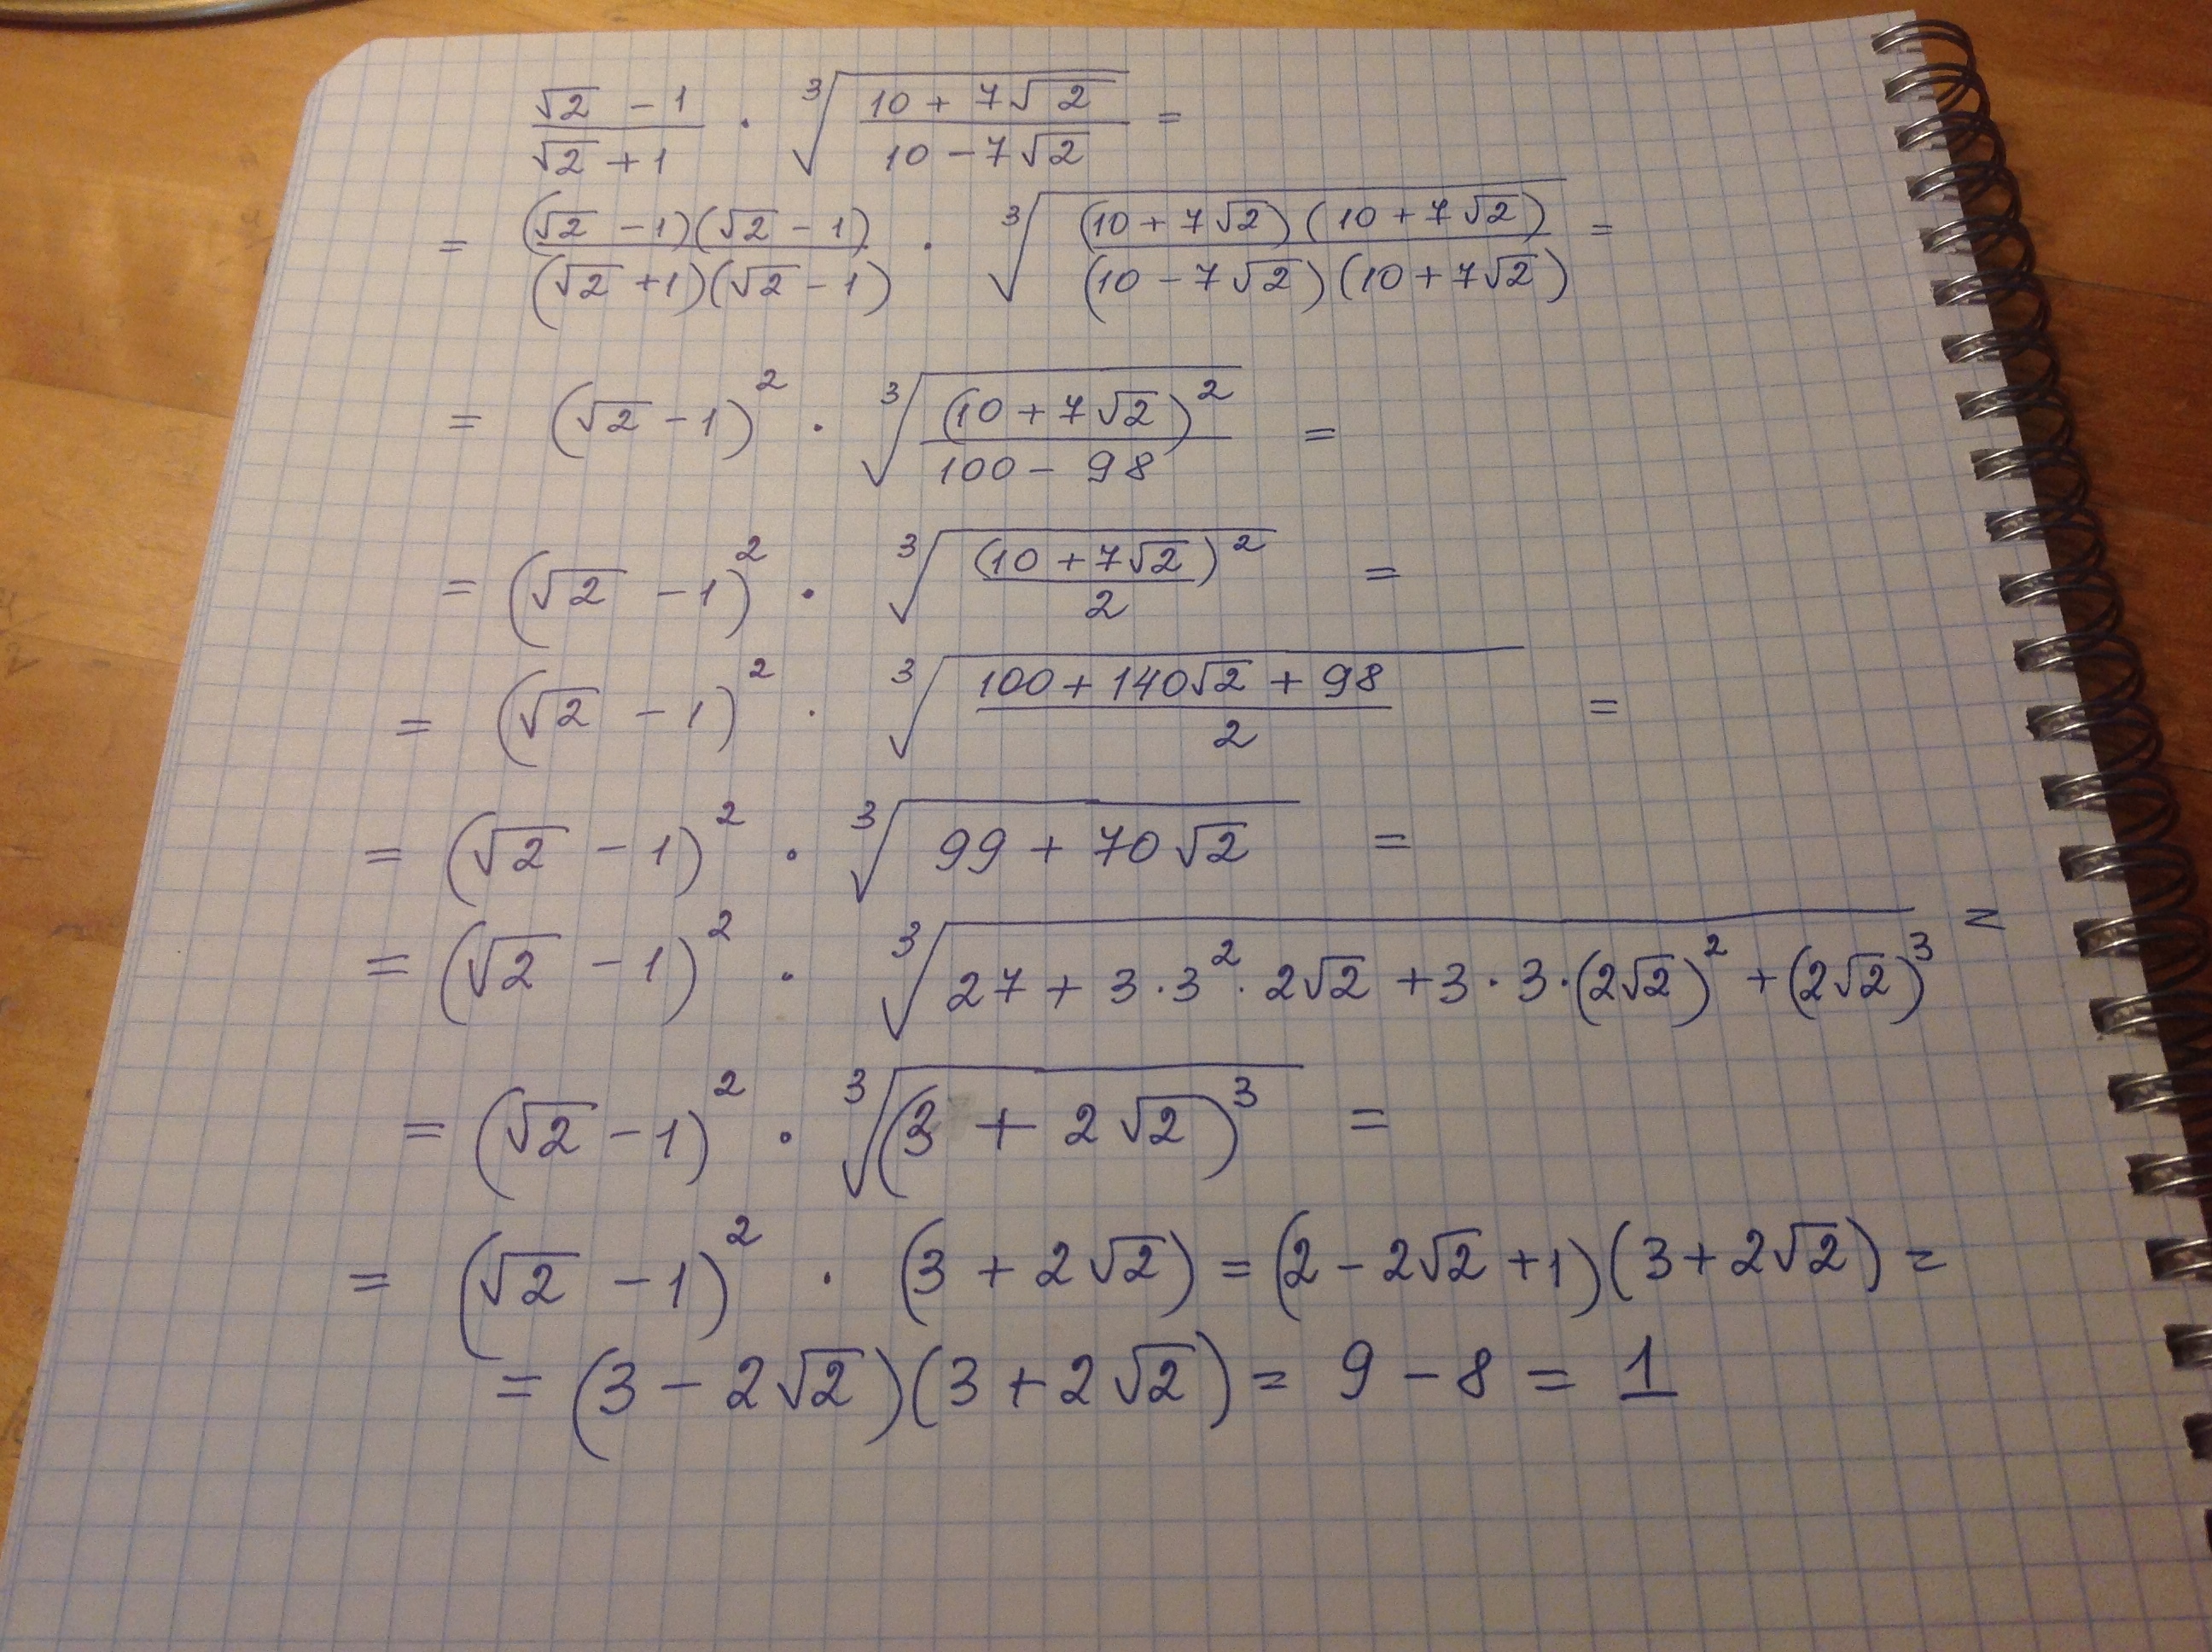 (√2 - 1)/(√2 + 1) · ∛((10 + 7√2)/(10 - 7√2)) =
= ((√2 - 1)(√2 - 1))/((√2 + 1)(√2 - 1)) · ∛(((10 + 7√2)(10 + 7√2))/((10 - 7√2)(10 + 7√2))) =
= (√2 - 1)² · ∛((10 + 7√2)²/(100 - 98)) =
= (√2 - 1)² · ∛((10 + 7√2)²/2) =
= (√2 - 1)² · ∛((100 + 140√2 + 98)/2) =
= (√2 - 1)² · ∛(99 + 70√2) =
= (√2 - 1)² · ∛(27 + 3·3²·2√2 + 3·3·(2√2)² + (2√2)³) =
= (√2 - 1)² · ∛((3 + 2√2)³) =
= (√2 - 1)² · (3 + 2√2) = (2 - 2√2 + 1)(3 + 2√2) =
= (3 - 2√2)(3 + 2√2) = 9 - 8 = 1